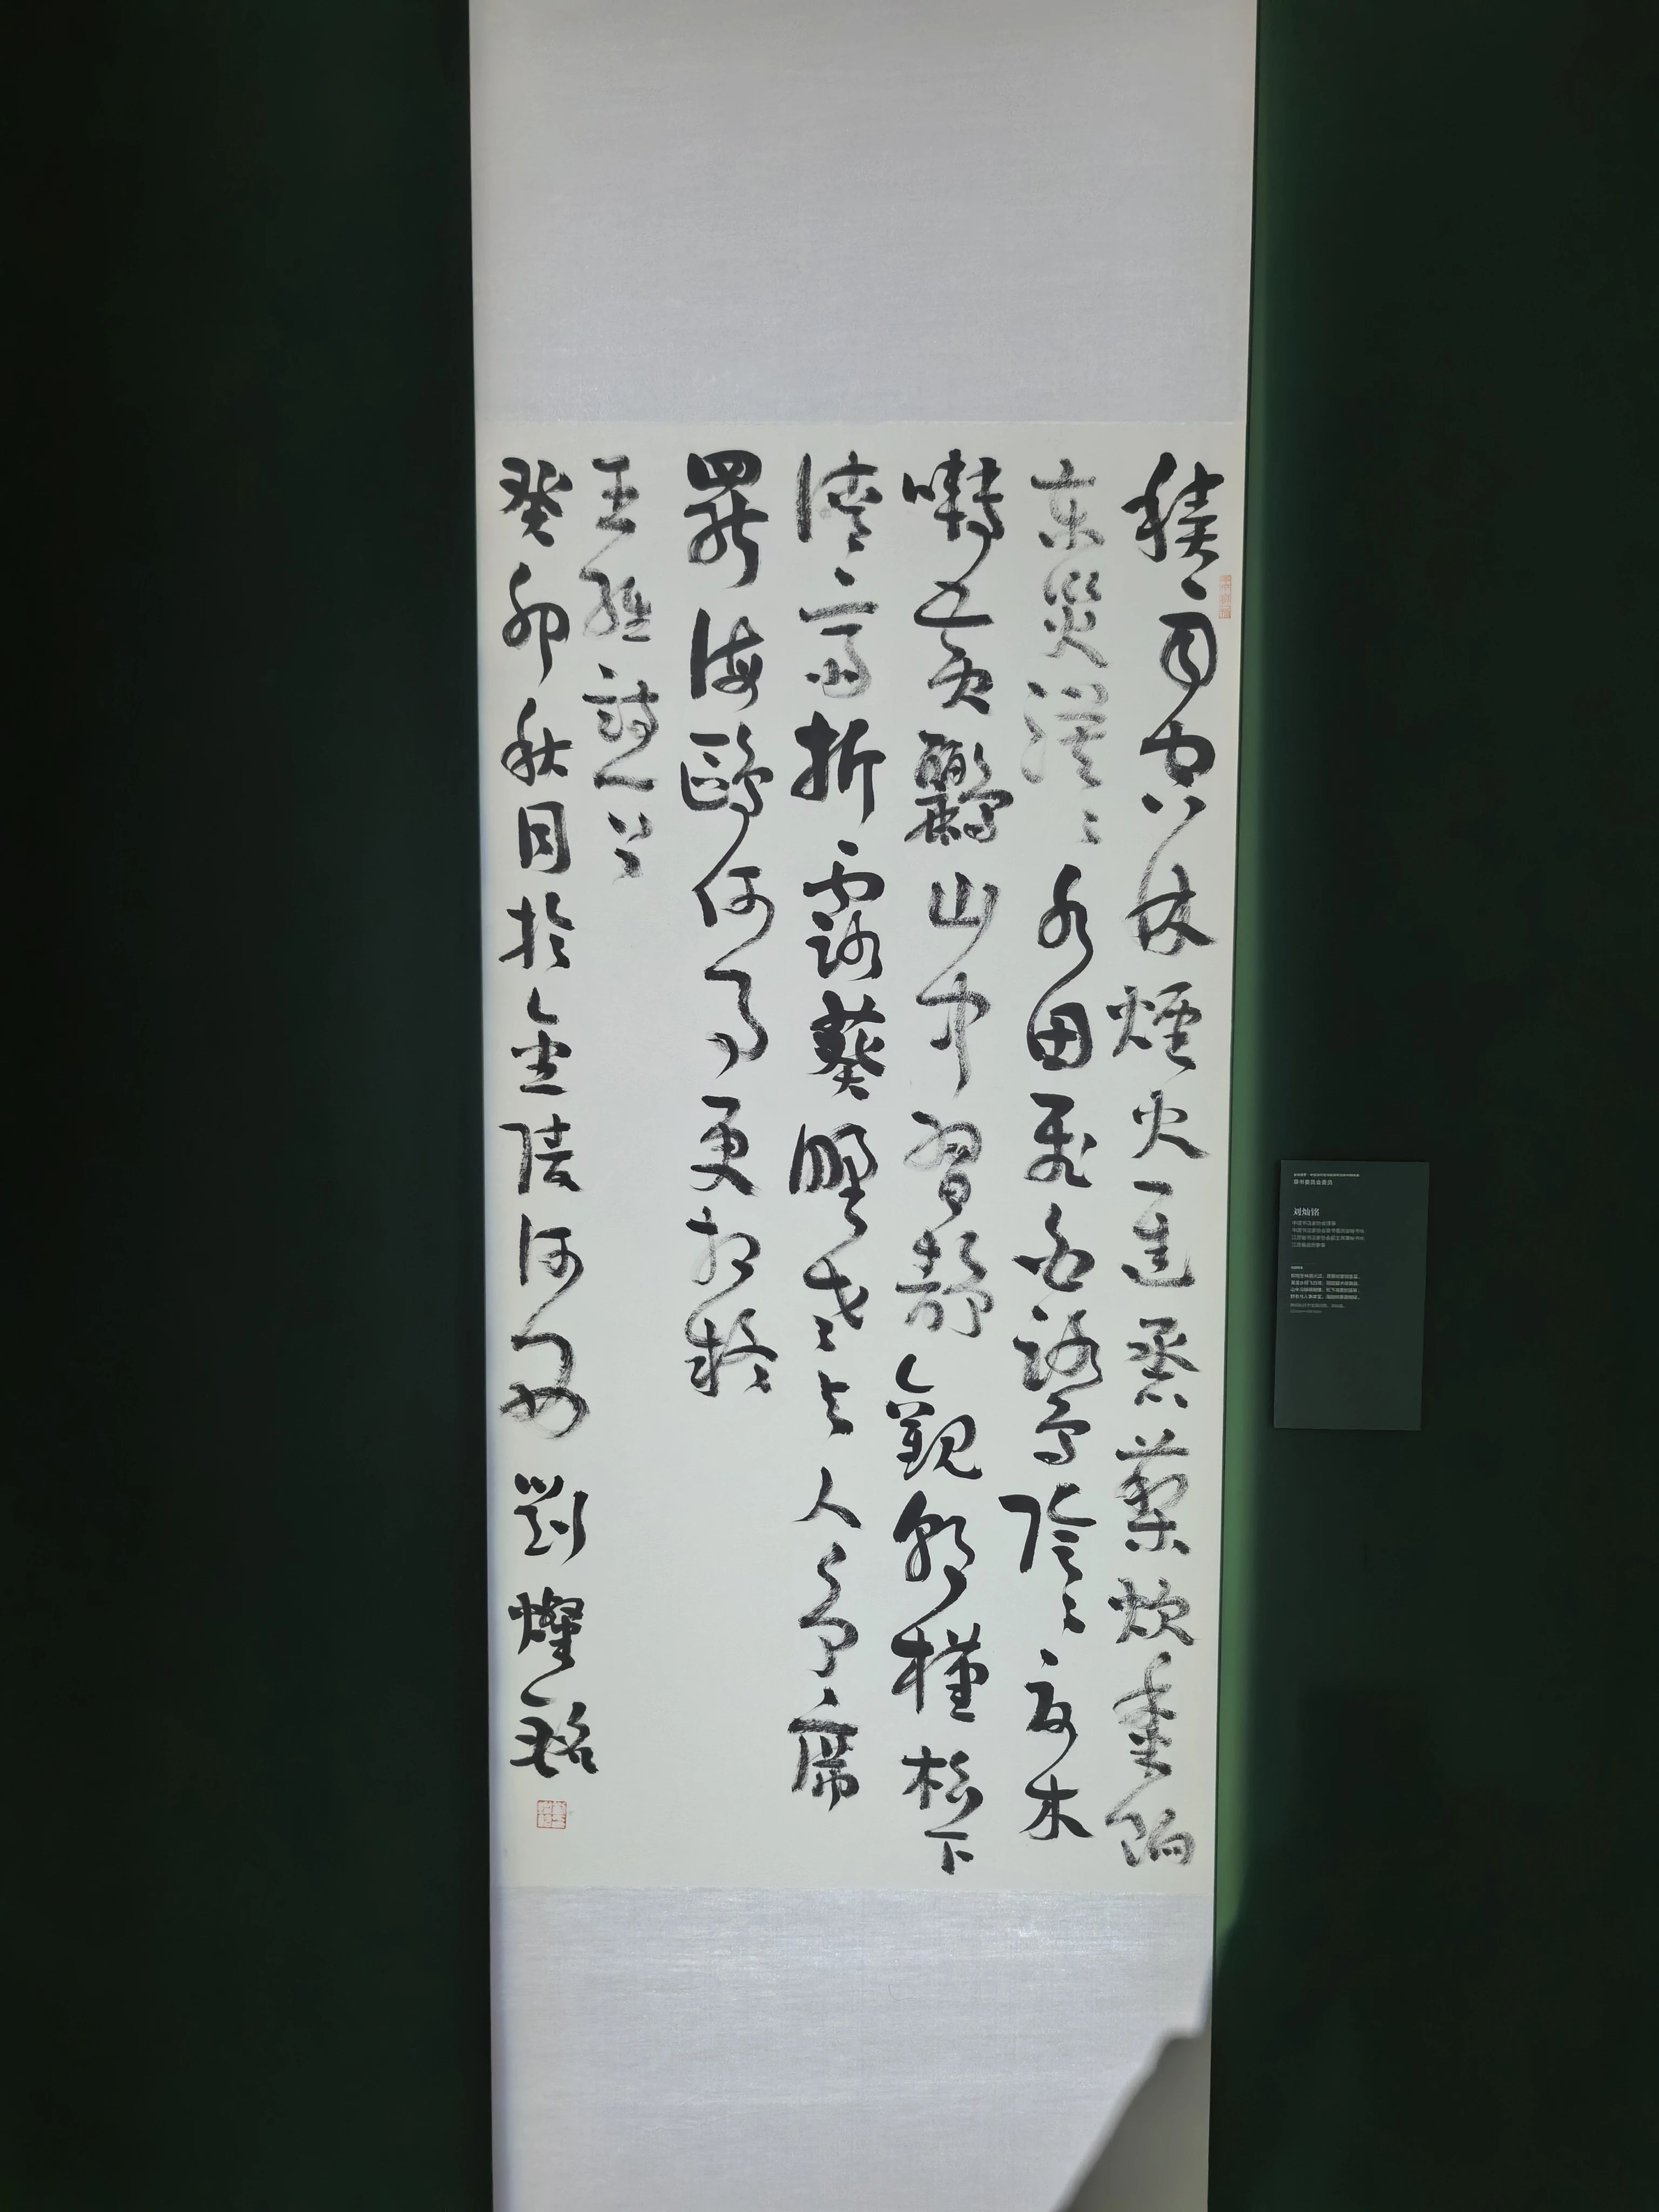 積雨空林煙火遲蒸藜炊黍餉
東菑漠〻水田飛白鷺陰〻夏木
囀黃鸝山中習靜觀朝槿松下
清齋折露葵野老與人爭席
罷海鷗何事更相疑
王維詩一首
癸卯秋月於金陵河 劉燦銘
刘灿铭